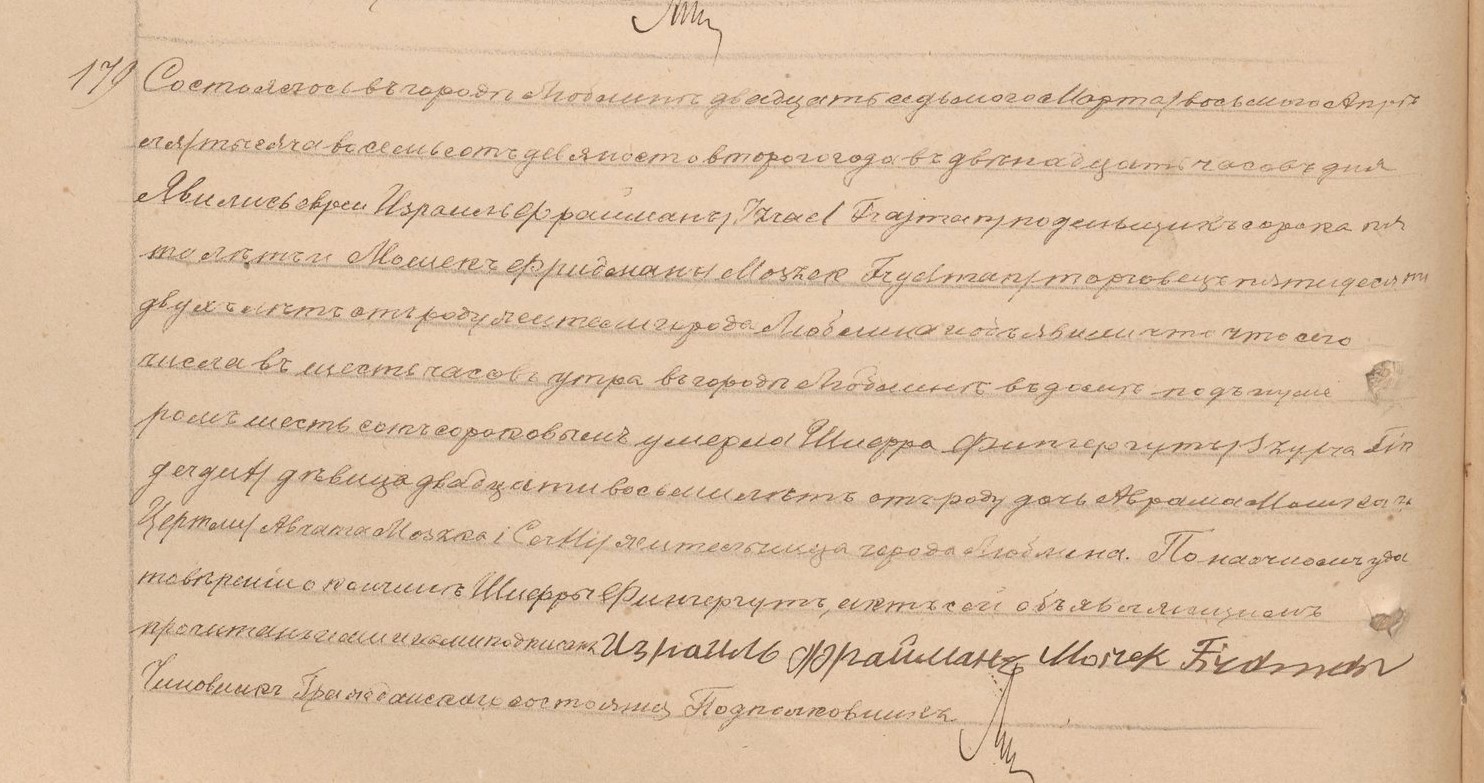 179
Состоялось въ городѣ Люблинѣ двадцать седьмого Марта/восьмого Апрѣ
ля/тысяча восемьсотъ девяносто второго года въ двѣнадцать часовъ дня
Явились евреи Израиль Фрайманъ/Izrael Frajman/поденьщикъ сорока пя
ти лѣтъ и Мошекъ Фридманъ/Moszek Frydman/торговецъ пятидесяти
двухъ лѣтъ отъ роду жители города Люблина и объявили что что сего
числа въ шесть часовъ утра въ городѣ Люблинѣ въ домѣ подъ нуме
ромъ шесть сотъ сороковымъ умерла Шифра Фингергутъ/Szyfra Fin
gergut/дѣвица двадцати восьми лѣтъ отъ роду дочь Аврама Мошка и
Цертли/Abrama Moszka i Certli/жительница города Люблина. По наочномъ удо
товѣреніи о кончинѣ Шифры Фингергутъ, актъ сей объявляющимъ
прочитанъ нами и ими подписанъ Израиль Фрайманъ Moszek Fridman
Чиновникъ Гражданскаго состоянія Подполковникъ